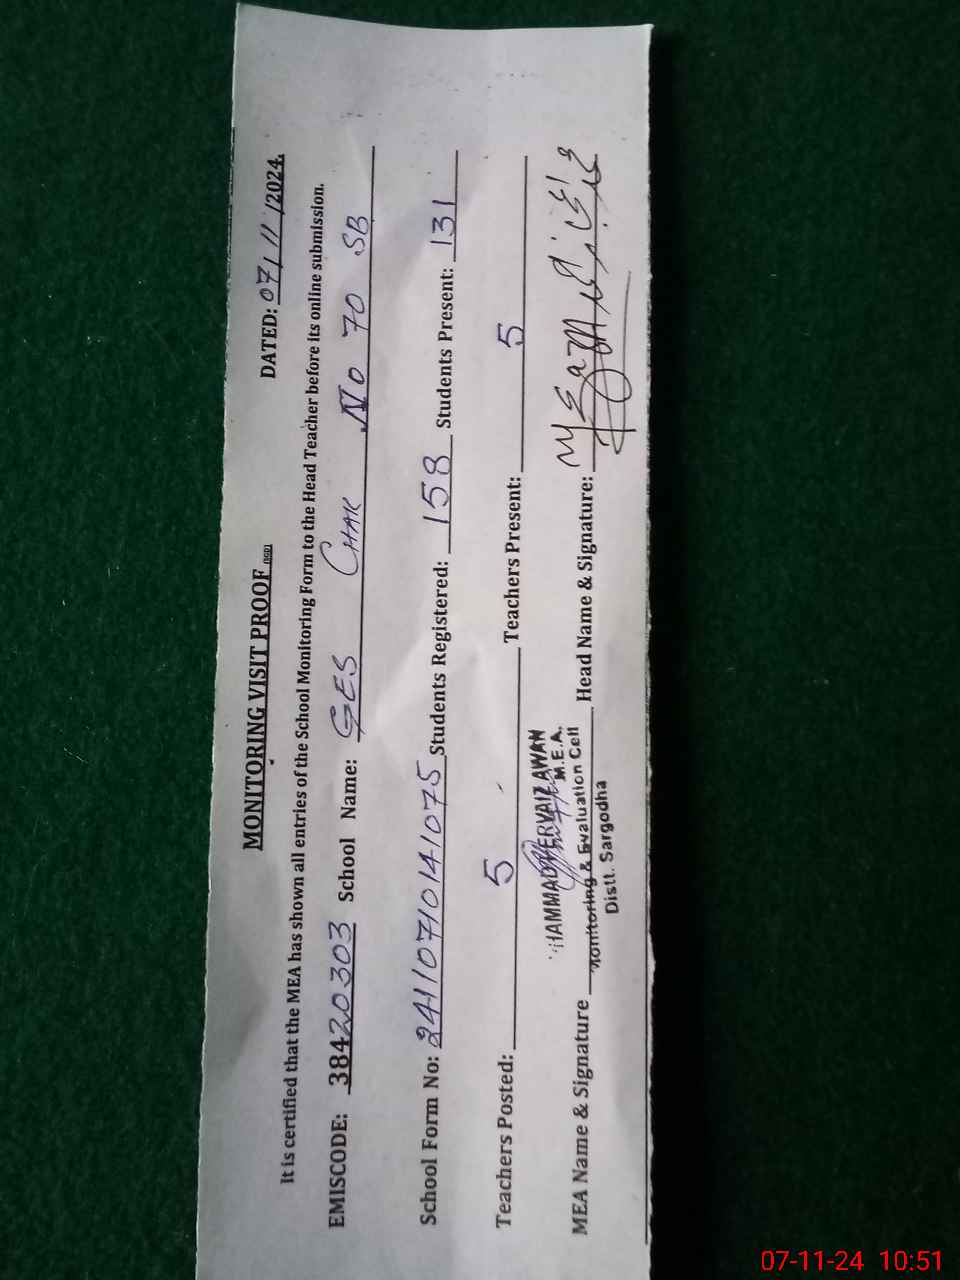 MONITORING VISIT PROOF
DATED: 07/11/2024.
It is certified that the MEA has shown all entries of the School Monitoring Form to the Head Teacher before its online submission.
EMISCODE: 38420303 School Name: GES CHAK No 70 SB
School Form No: 24110710141075 Students Registered: 158 Students Present: 131
Teachers Posted: 5 Teachers Present: 5
PERVAIZ AWAN
M.E.A.
MEA Name & Signature Monitoring & Evaluation Cell Head Name & Signature:
Distt. Sargodha
07-11-24 10:51